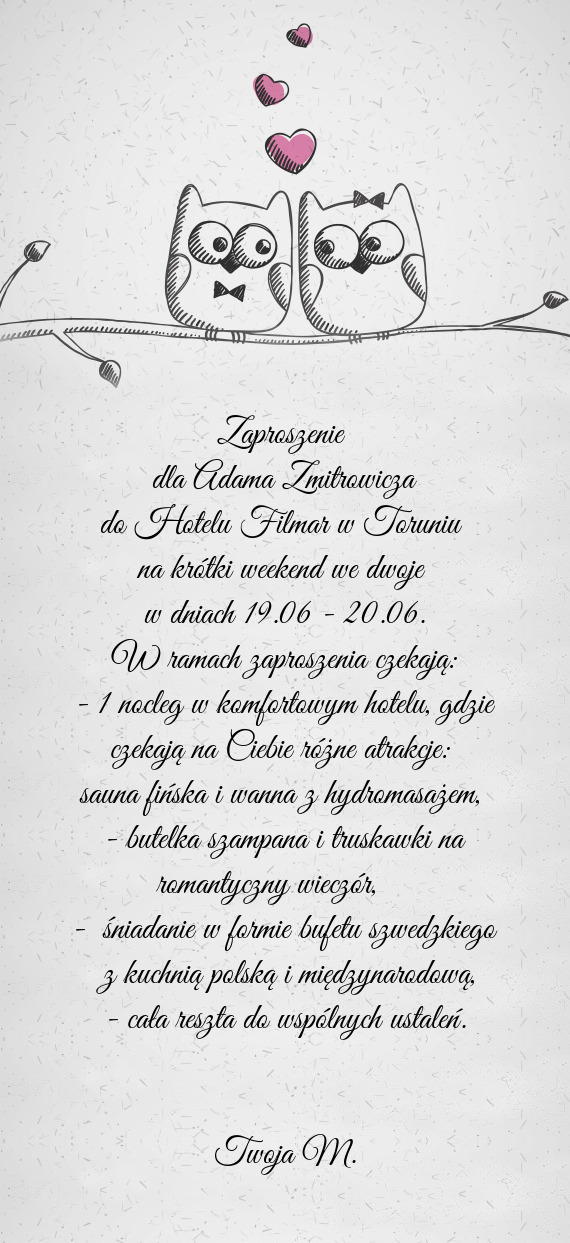 Zaproszenie
dla Adama Zmitrowicza
do Hotelu Filmar w Toruniu
na krótki weekend we dwoje
w dniach 19.06 - 20.06.
W ramach zaproszenia czekają:
- 1 nocleg w komfortowym hotelu, gdzie
czekają na Ciebie różne atrakcje:
sauna fińska i wanna z hydromasażem,
- butelka szampana i truskawki na
romantyczny wieczór,
- śniadanie w formie bufetu szwedzkiego
z kuchnią polską i międzynarodową,
- cała reszta do wspólnych ustaleń.
Twoja M.